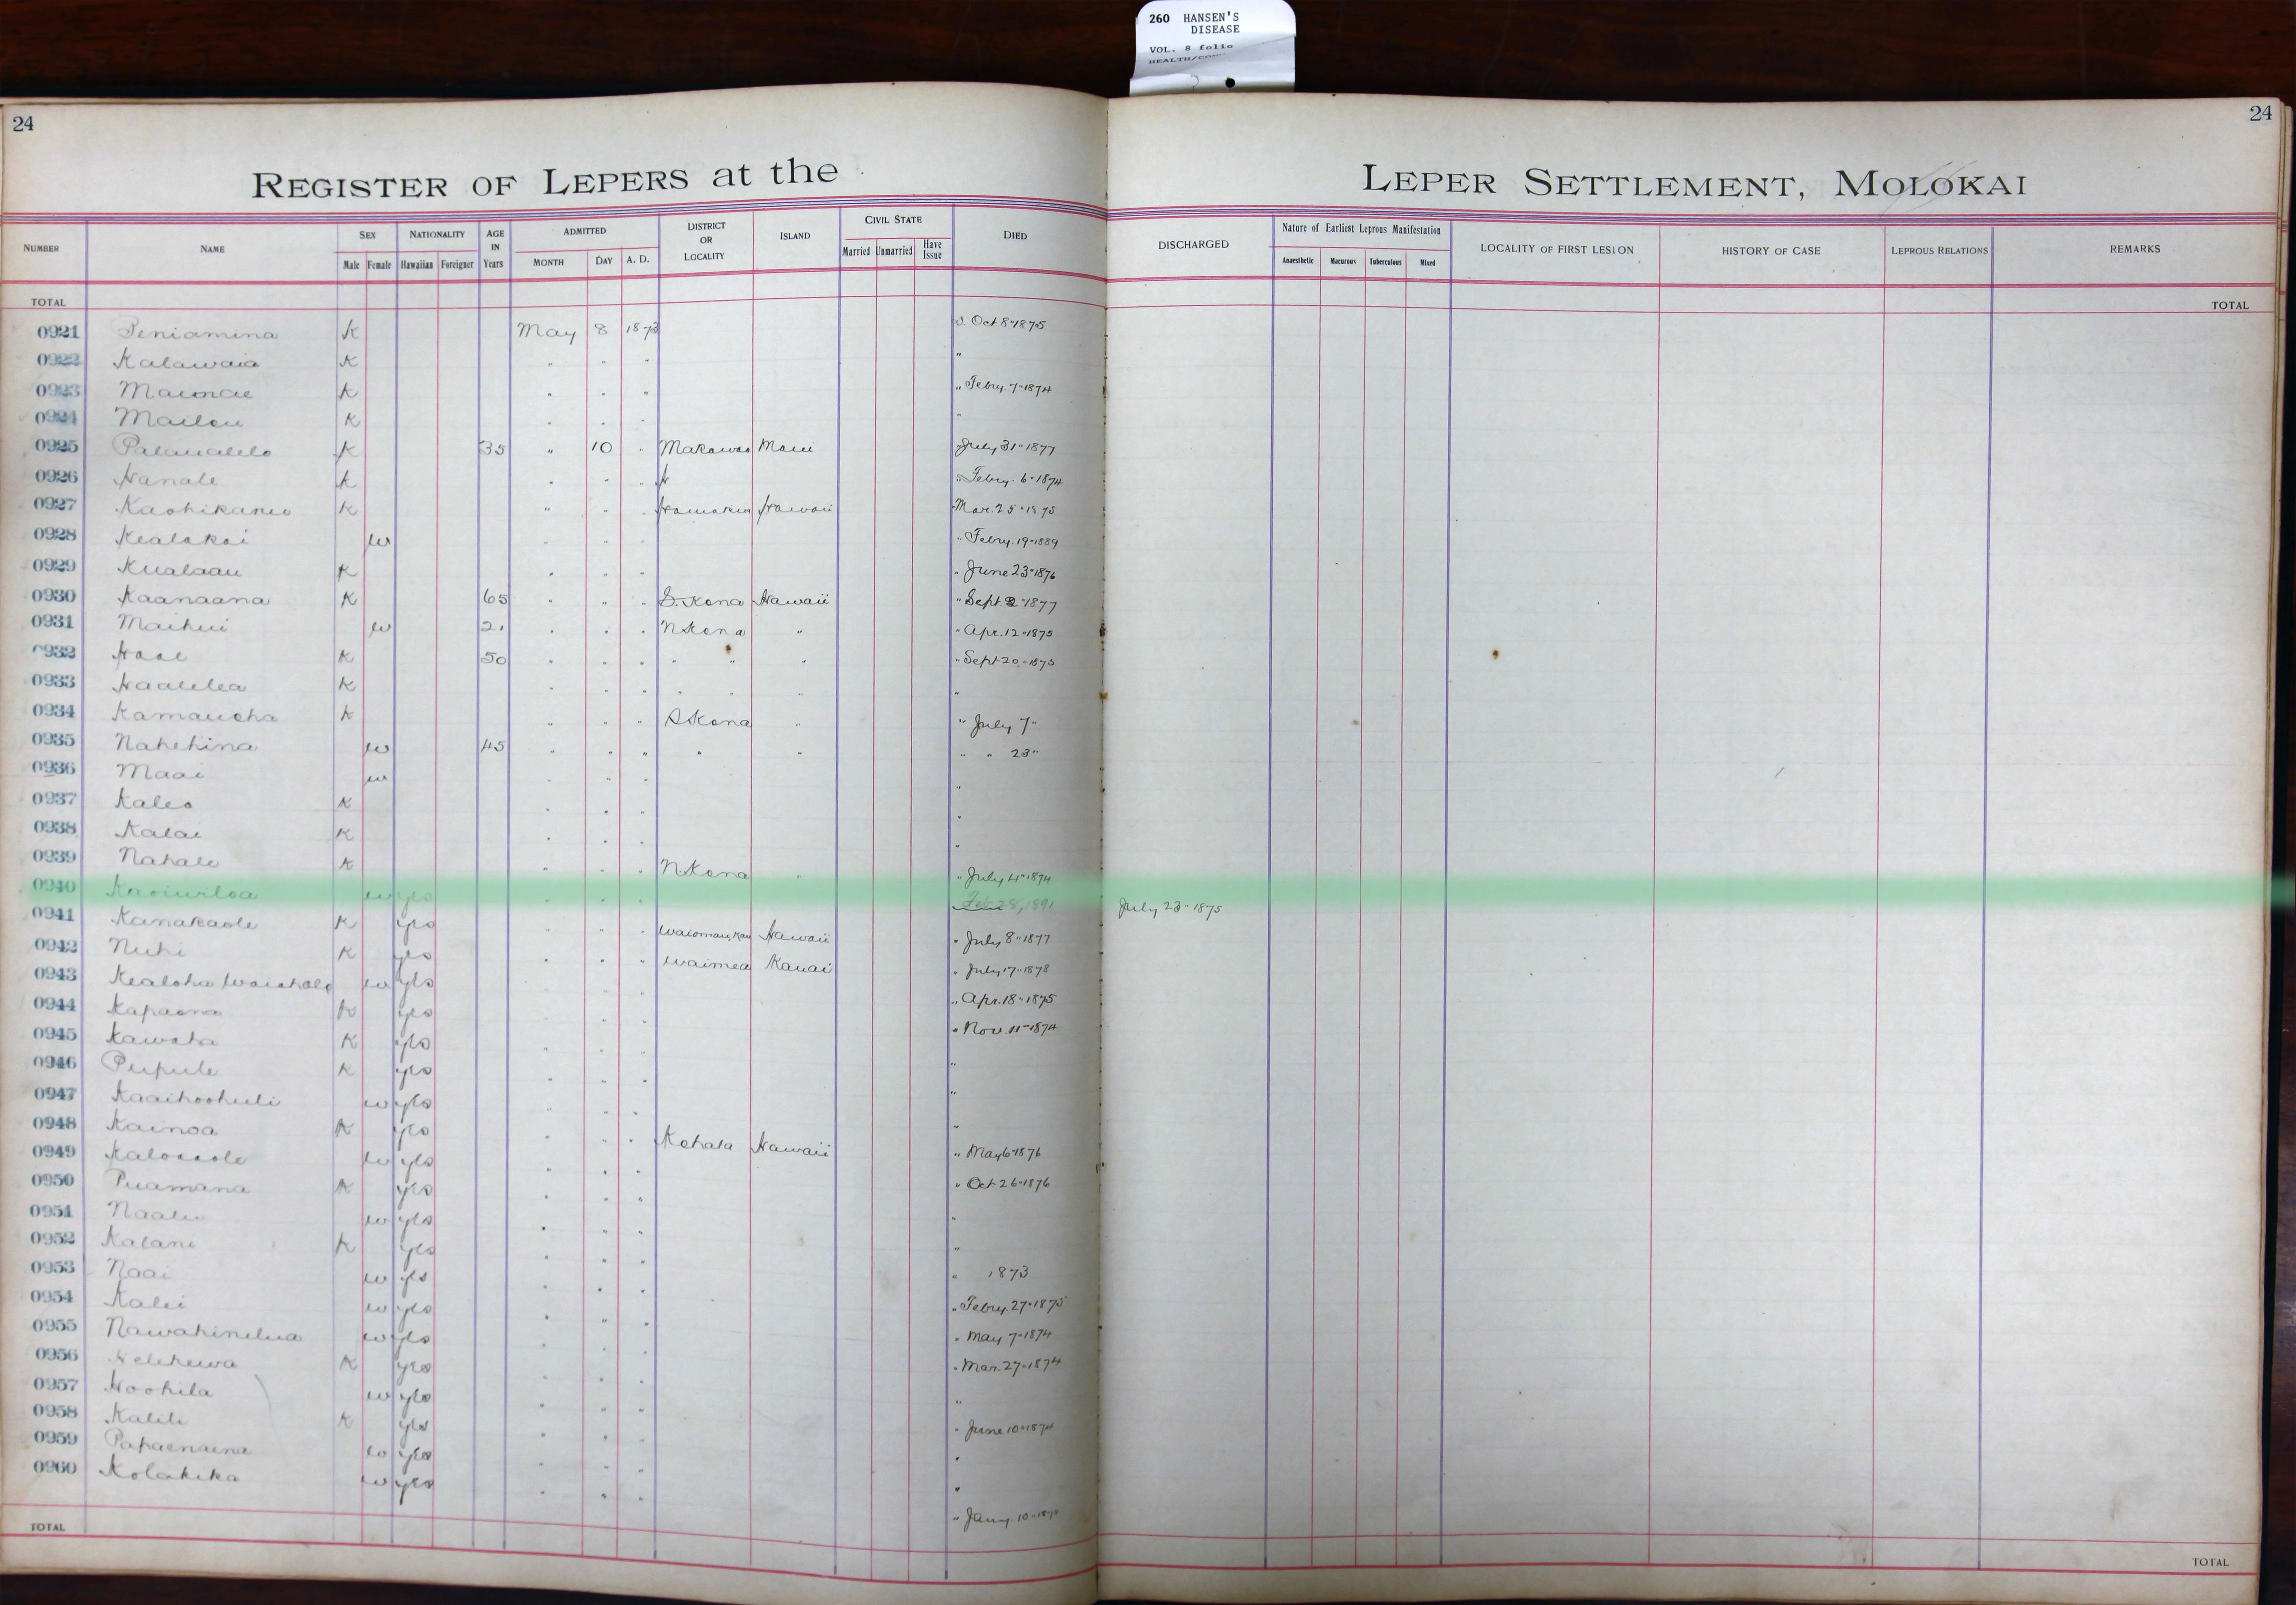 260 HANSEN'S
DISEASE
VOL. 8 folio
24
24
REGISTER OF LEPERS at the LEPER SETTLEMENT, MOLOKAI
NUMBER NAME SEX Male Female NATIONALITY Hawaiian Foreigner AGE IN Years ADMITTED MONTH DAY A. D. DISTRICT OR LOCALITY ISLAND CIVIL STATE Married Unmarried Have Issue DIED DISCHARGED Nature of Earliest Leprous Manifestation Anaesthetic Macurous Tuberculous Mixed LOCALITY OF FIRST LESION HISTORY OF CASE LEPROUS RELATIONS REMARKS
TOTAL TOTAL
0921 Peniamina K May 8 1873 Oct 8 " 1875
0922 Kalawaia K " " " "
0923 K " " " " Febry. 7 " 1874
0924 K " " " "
0925 K 35 " 10 " Makawao Maui July 31 " 1877
0926 Hanale K " " " " Febry. 6 " 1874
0927 K " " " Hamakua Hawaii Mar. 25 " 1875
0928 w " " " " Febry. 19 " 1889
0929 Kualaau K " " " " June 23 " 1876
0930 Kaanaana K 65 " " " S. Kona Hawaii " Sept 2 " 1877
0931 Maihui w 21 " " " N Kona " " Apr. 12 " 1875
0932 K 50 " " " " " " " Sept 20 " 1875
0933 Haalelea K " " " " " " "
0934 K " " " S Kona " " July 7 "
0935 Nahehina w 45 " " " " " " " 23 "
0936 Maai w " " " "
0937 Kaleo K " " " "
0938 Kalai K " " " "
0939 Nahale K " " " N Kona " " July 4 " 1874
0940 w yes " " " Feb 28, 1891 July 23 " 1875
0941 Kanakaole K yes " " " Kau Hawaii " July 8 " 1877
0942 Nuhi K yes " " " Waimea Kauai " July 17 " 1878
0943 Kealoha w yes " " " " Apr. 18 " 1875
0944 Kapaona K yes " " " " Nov. 11 " 1874
0945 Kawaha K yes " " " "
0946 Pupule K yes " " " "
0947 Kaaihoohuli w yes " " " "
0948 Kainoa K yes " " " Kohala Hawaii " May 6 " 1876
0949 w yes " " " " Oct 26 " 1876
0950 Puamana K yes " " " "
0951 w yes " " " "
0952 Kalani K yes " " " " 1873
0953 Naai w yes " " " " Febry. 27 " 1875
0954 Kalei w yes " " " " May 7 " 1874
0955 w yes " " " " Mar. 27 " 1874
0956 K yes " " " "
0957 Hoohila w yes " " " " June 10 " 1874
0958 Kalili K yes " " " "
0959 Papaenaena w yes " " " "
0960 Kolakika w yes " " " " Jany. 10 "
TOTAL TOTAL